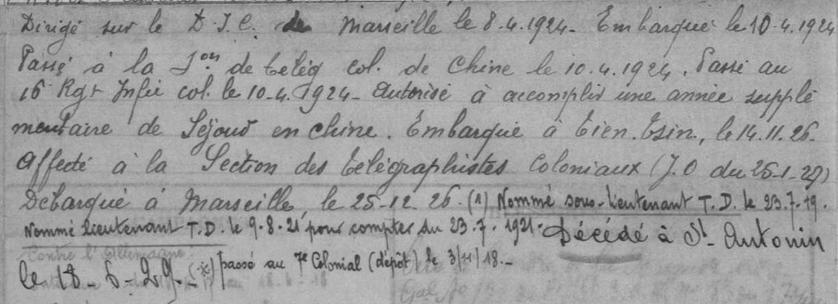 Dirigé sur le D.I.C. de Marseille le 8.4.1924. Embarqué le 10.4.1924
Passé à la Son de télég col. de Chine le 10.4.1924. Passé au
16 Rgt Infie col. le 10-4.1924- autorisé à accomplir une année supplé
mentaire de Séjour en Chine. Embarqué à Tien.Tsin, le 14.11.26.
Affecté à la Section des télégraphistes Coloniaux (J.O du 25-1-27)
Débarqué à Marseille, le 25-12.26. (1) Nommé sous-Lieutenant T.D. le 23.7-19.
Nommé Lieutenant T.D. le 9-8-21, pour compter du 23.7.1921. Décédé à St Antonin
le 18-6-29. (x) passé au 7e Colonial (dépôt) le 3/11/18.-
contre l'Allemagne